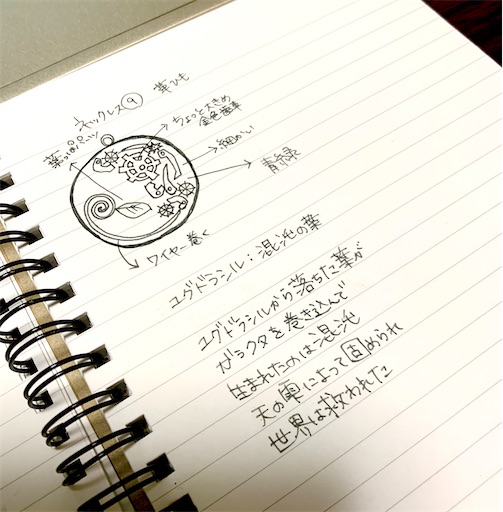 ネックレス⑨ 革ひも
葉っぱパーツ
ちょっと大きめ
金色歯車
細かい
青緑
ワイヤー巻く
ユグドラシル:混沌の葉
ユグドラシルから落ちた葉が
ガラクタを巻き込んで
生まれたのは混沌
天の雫によって固められ
世界は救われた